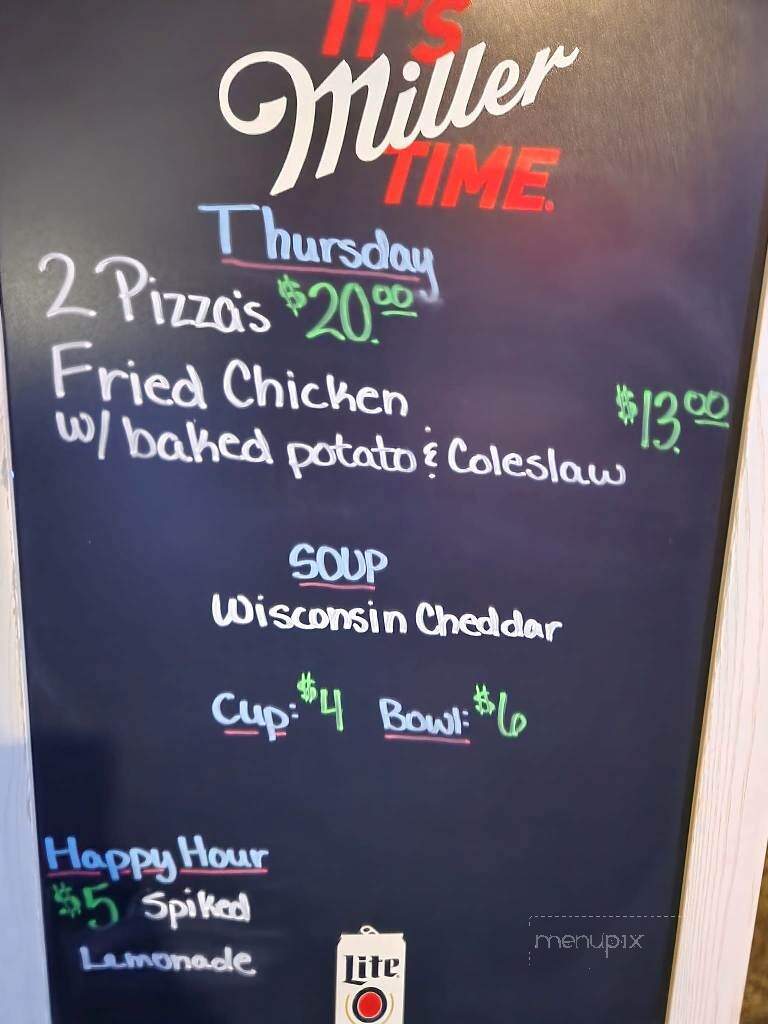 IT'S
Miller
TIME.
Thursday
2 Pizza's $20.00
Fried Chicken
w/ baked potato & Coleslaw $13.00
SOUP
Wisconsin Cheddar
Cup: $4 Bowl: $6
Happy Hour
$5 Spiked
Lemonade
Lite
menupix